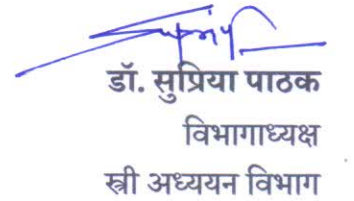 डॉ. सुप्रिया पाठक
विभागाध्यक्ष
स्त्री अध्ययन विभाग